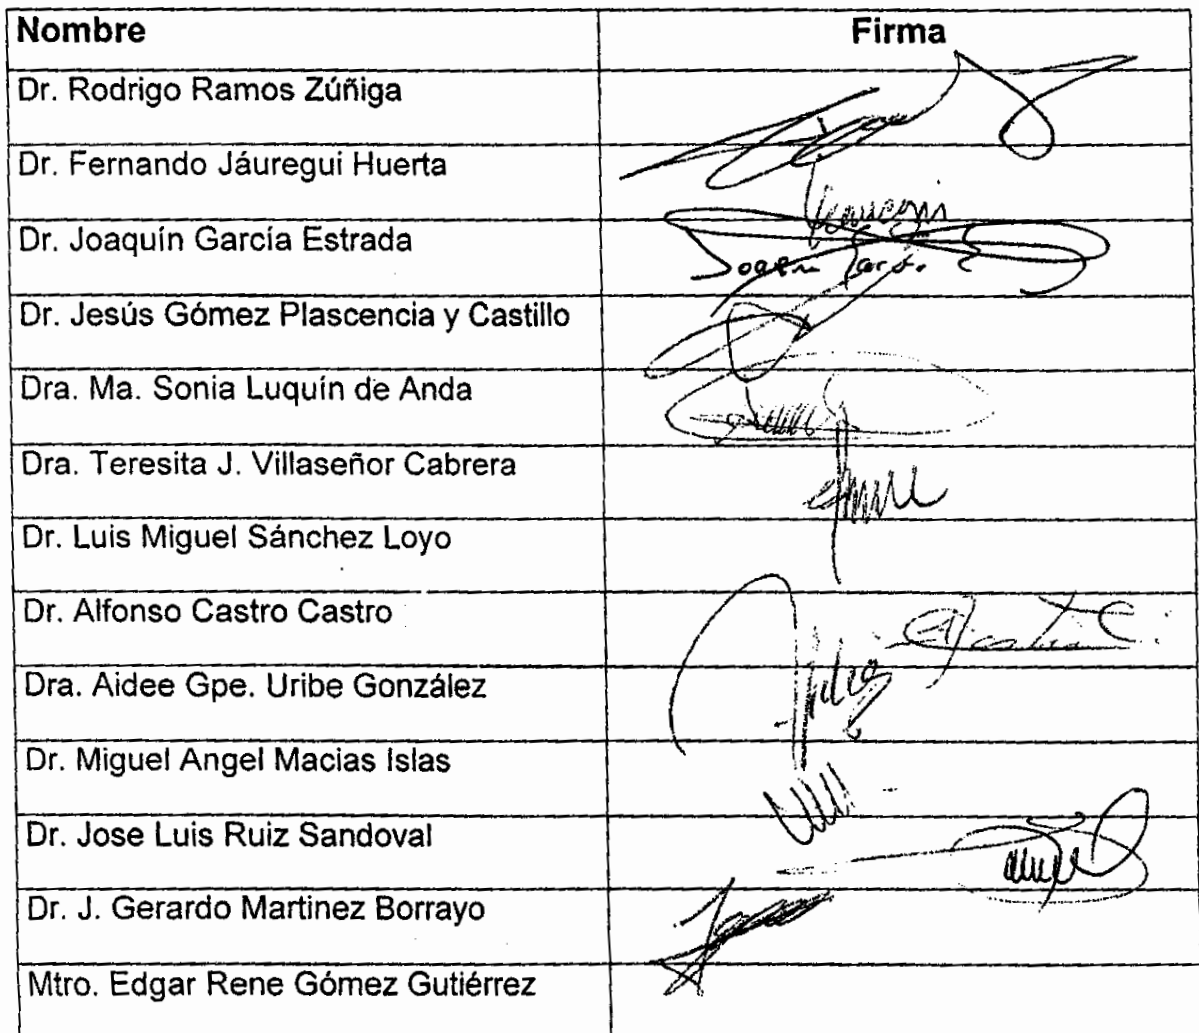 Nombre Firma
Dr. Rodrigo Ramos Zúñiga
Dr. Fernando Jáuregui Huerta
Dr. Joaquín García Estrada
Dr. Jesús Gómez Plascencia y Castillo
Dra. Ma. Sonia Luquín de Anda
Dra. Teresita J. Villaseñor Cabrera
Dr. Luis Miguel Sánchez Loyo
Dr. Alfonso Castro Castro
Dra. Aidee Gpe. Uribe González
Dr. Miguel Angel Macias Islas
Dr. Jose Luis Ruiz Sandoval
Dr. J. Gerardo Martinez Borrayo
Mtro. Edgar Rene Gómez Gutiérrez